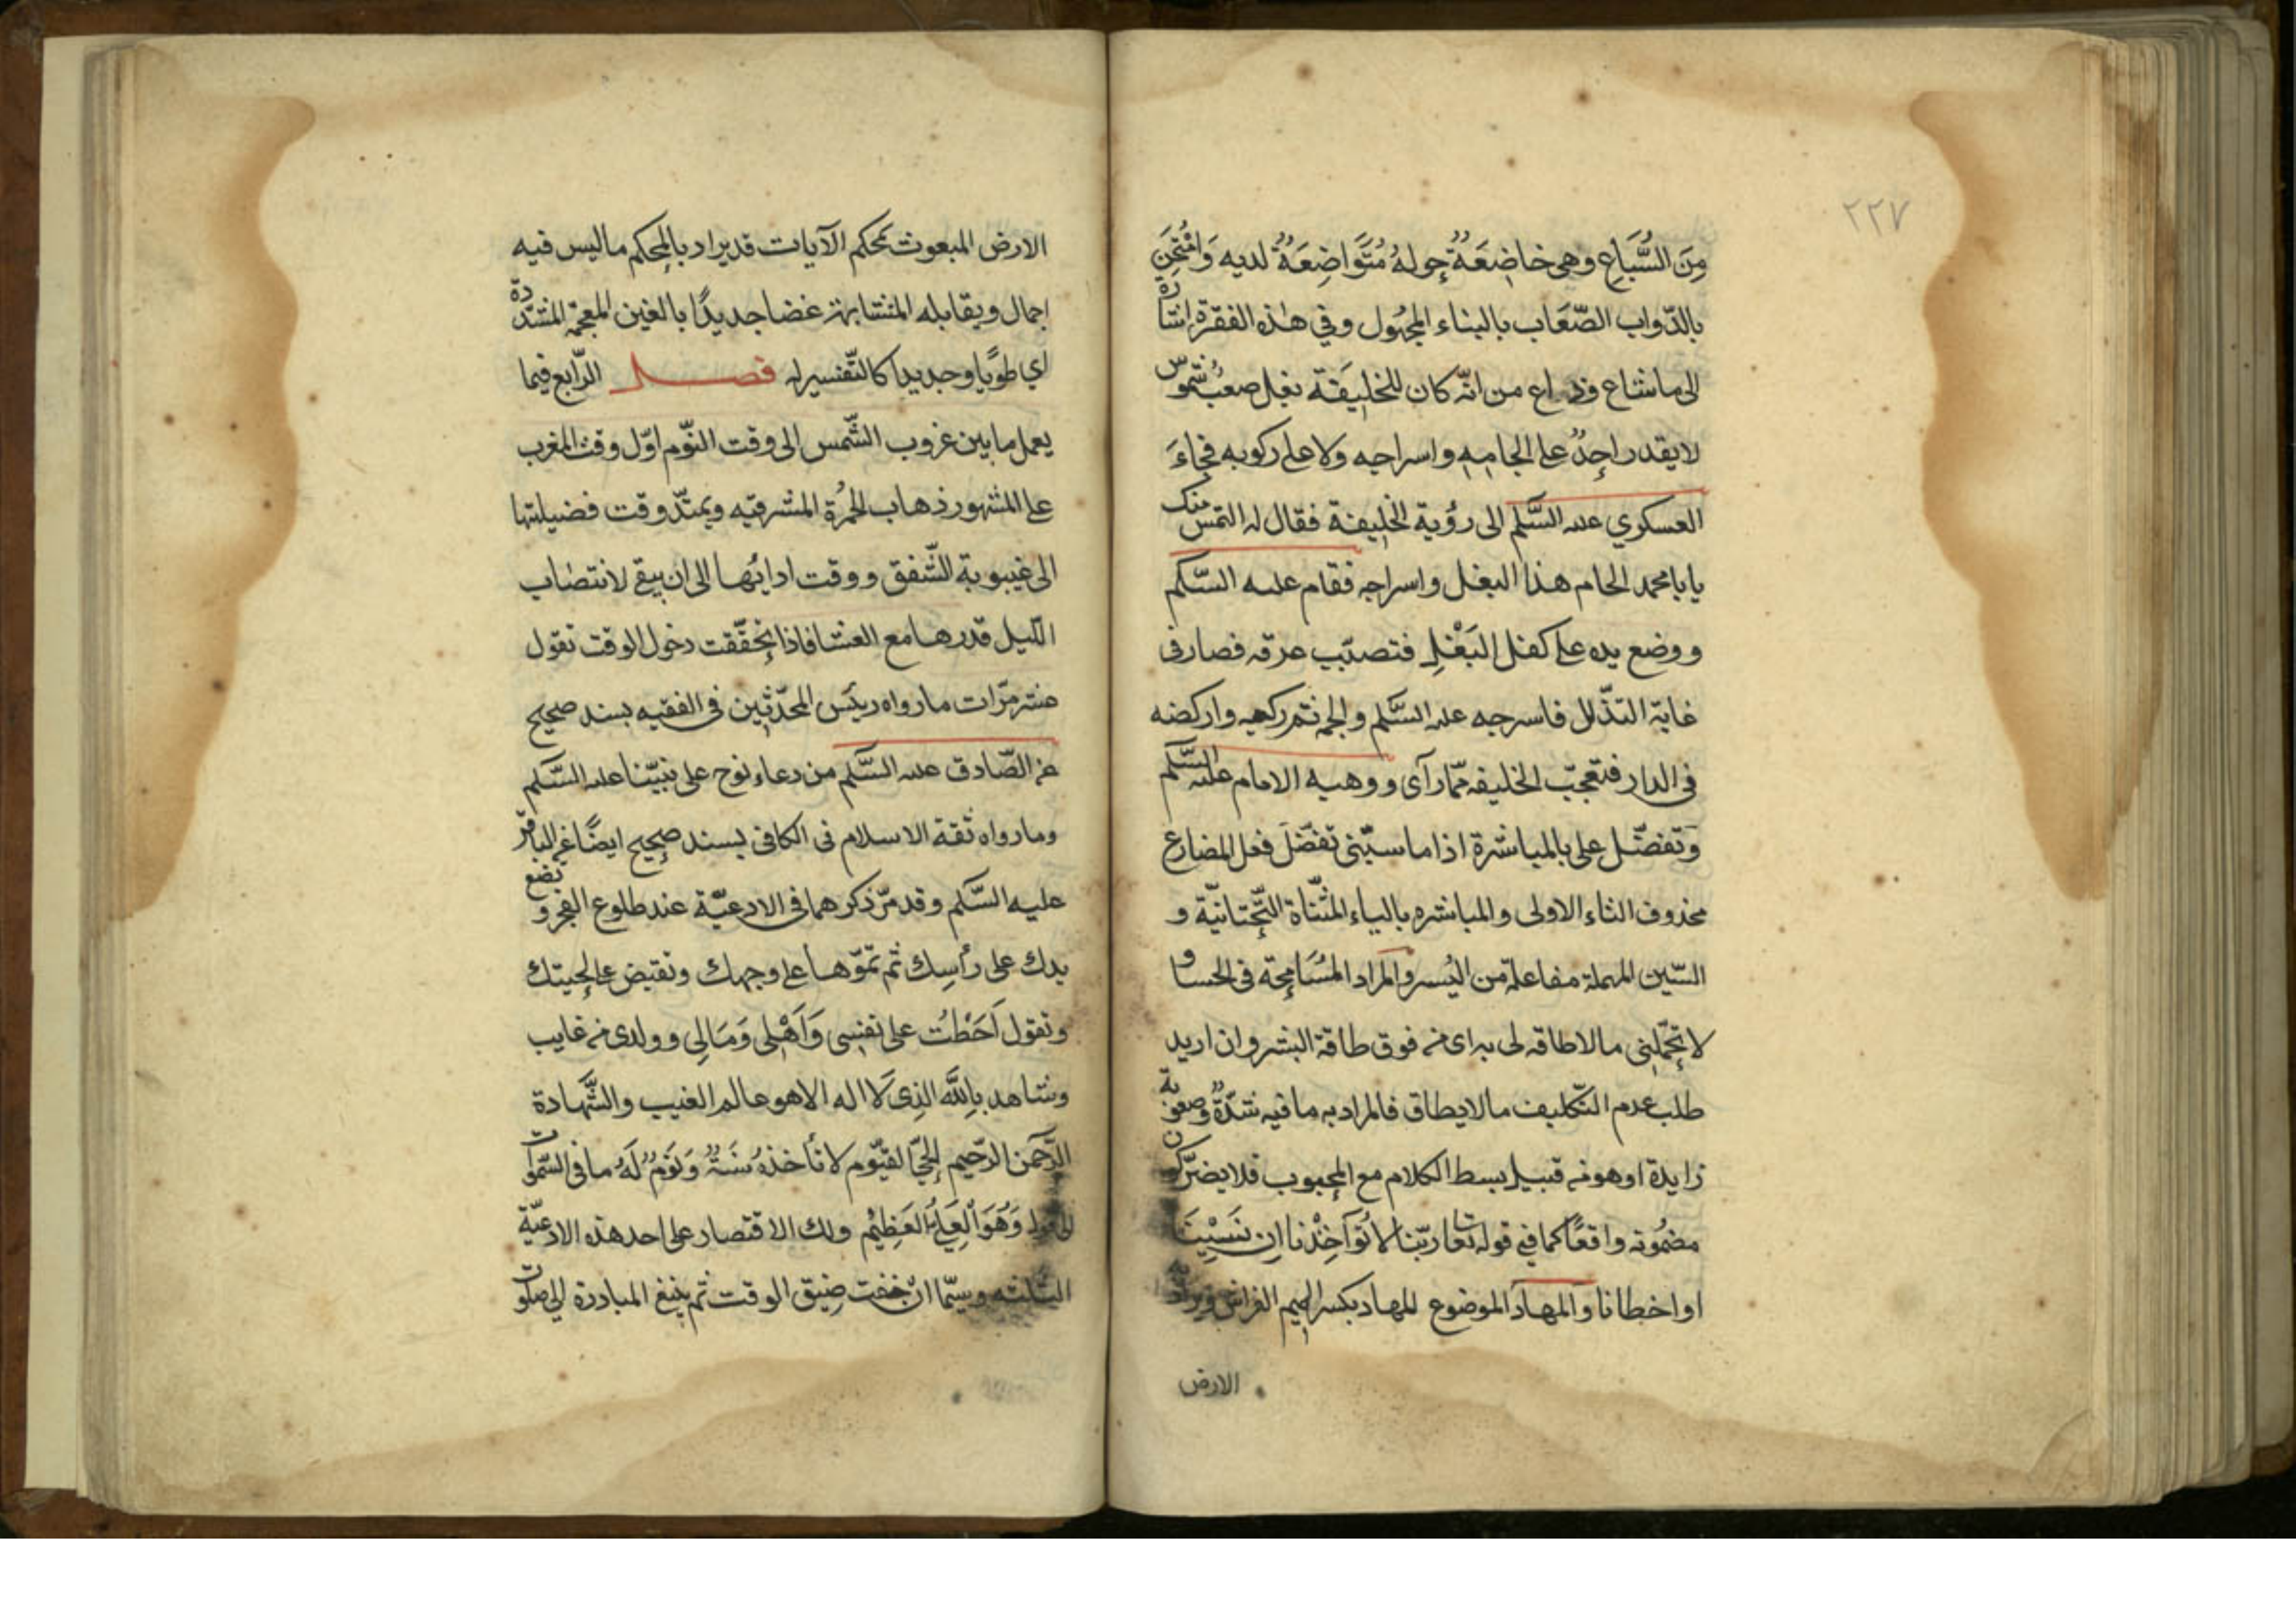 ٢٢٧
مِنَ السُّبَاعِ وهي خاضِعَةٌ حوله مُتَوَاضِعَةٌ لديه وَامْتُحِنَ
بالدّواب الصّعَاب بالبناء المجهُول وفي هذه الفقرة اشارة
الى ماشاع وذاع من انّه كان للخليفَة بغل صعبٌ شموس
لا يقدر احدٌ على الجامه واسراجه ولا على ركوبه فجاءَ
العسكري عليه السَّلم الى رؤية الخليفة فقال له التمس منك
يا با محمد الجام هذا البغل واسراجه فقام عليه السّلم
ووضع يده على كفل البَغْلِ فتصبّب عرقه فصار في
غاية التذّلل فاسرجه عليه السَّلم والجمه ثم ركبه واركضه
في الدار فتعجبّ الخليفه ممّا رآى ووهبه الامام عليه السَّلم
وَتفضّل على بالمياسرة اذا ماسبّنى تفضّلَ فعل المضارع
محذوف التاء الاولى والمياسره بالياء المثنّاة التّحتانيّة و
السّين المهملة مفاعلة من اليُسر والمراد المسَامحة في الحساب و
لا تحمّلنى مالاطاقه لى به اى من فوق طاقة البشر وان اريد
طلب عدم التّكليف مالايطاق فالمراد به ما فيه شدّةٌ وصعوبة
زايدة او هو من قبيل بسط الكلام مع المحبوب فلا يضرّ كون
مضمُونه واقعًا كما في قوله تعا ربّنا لا تُؤَاخِذْنا اِن نَسْيِنَا
او اخطانا والمهاد الموضوع المهاد بكسر الميم الفراش ويراد
الارض
الارض المبعوث بمحكم الآيات قد يراد بالمحكم ماليس فيه
اجمال ويقابله المتشابه غضا جديدًا بالغين المعجمة المشدّدة
اي طويًا وجديدا كالتّفسير له فصل الرّابع فيما
يعمل مابين غروب الشّمس الى وقت النّوم اوّل وقت المغرب
على المشهور ذهاب الحُمْرة المشرقيّه ويمتدّ وقت فضيلتها
الى غيبوبة الشّفق ووقت ادائها الى ان يبقى لانتصاب
اللّيل قدرها مع العشا فاذا تحقّقت دخول الوقت تقول
عشر مرّات مارواه رئيس المحدّثين في الفقيه بسند صحيح
عن الصّادق عليه السَّلم من دعاء نوح على نبيّنا عليه السَّلم
ومارواه ثقة الاسلام في الكافى بسند صحيح ايضًا عن الباقر
عليه السَّلم وقد مرّ ذكرهما في الادعيّة عند طلوع الفجر و تضع
يدك على رأسِك ثم تمرّها على وجهك وتقبض على لحيتك
وتقول اَحَطْتُ على نفسى وَاَهْلى وَمَالى وولدى من غايب
وشاهد باِللّهِ الذِى لَا اله الا هو عالم الغيب والشّهادة
الرّحمن الرّحيم الحيّ القيّوم لا تأخذهُ سَنَةٌ وَنَومٌ لَهُ ما في السّموات
الى قوله وَهُوَ العَلِيُّ العَظِيْم ولك الاقتصار على احد هذه الادعيّة
الثلثه وسيّما ان خفت ضيق الوقت ثم ينبغ المبادرة الى صلوت